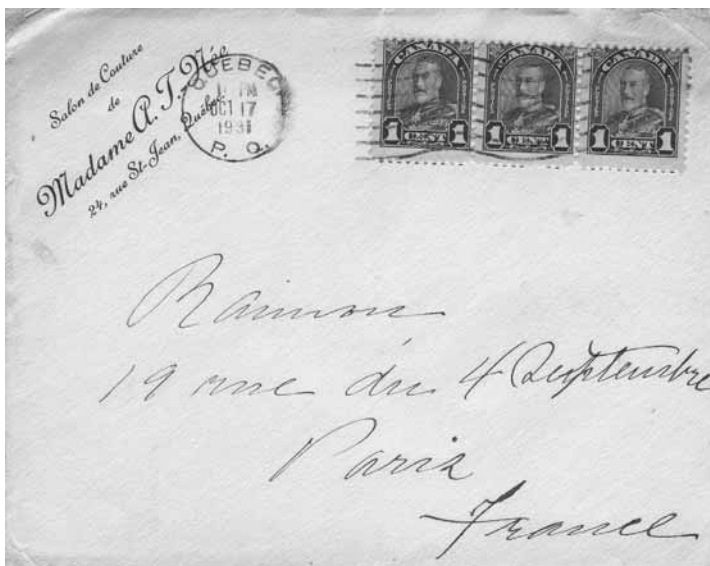 Salon de Couture
de
Madame A. T.-Née
24, rue St-Jean, Québec
QUEBEC
PM
OCT 17
1931
P. Q.
CANADA CANADA CANADA
1 CENT 1 1 CENT 1 1 CENT 1
19 rue du 4 Septembre
Paris
France